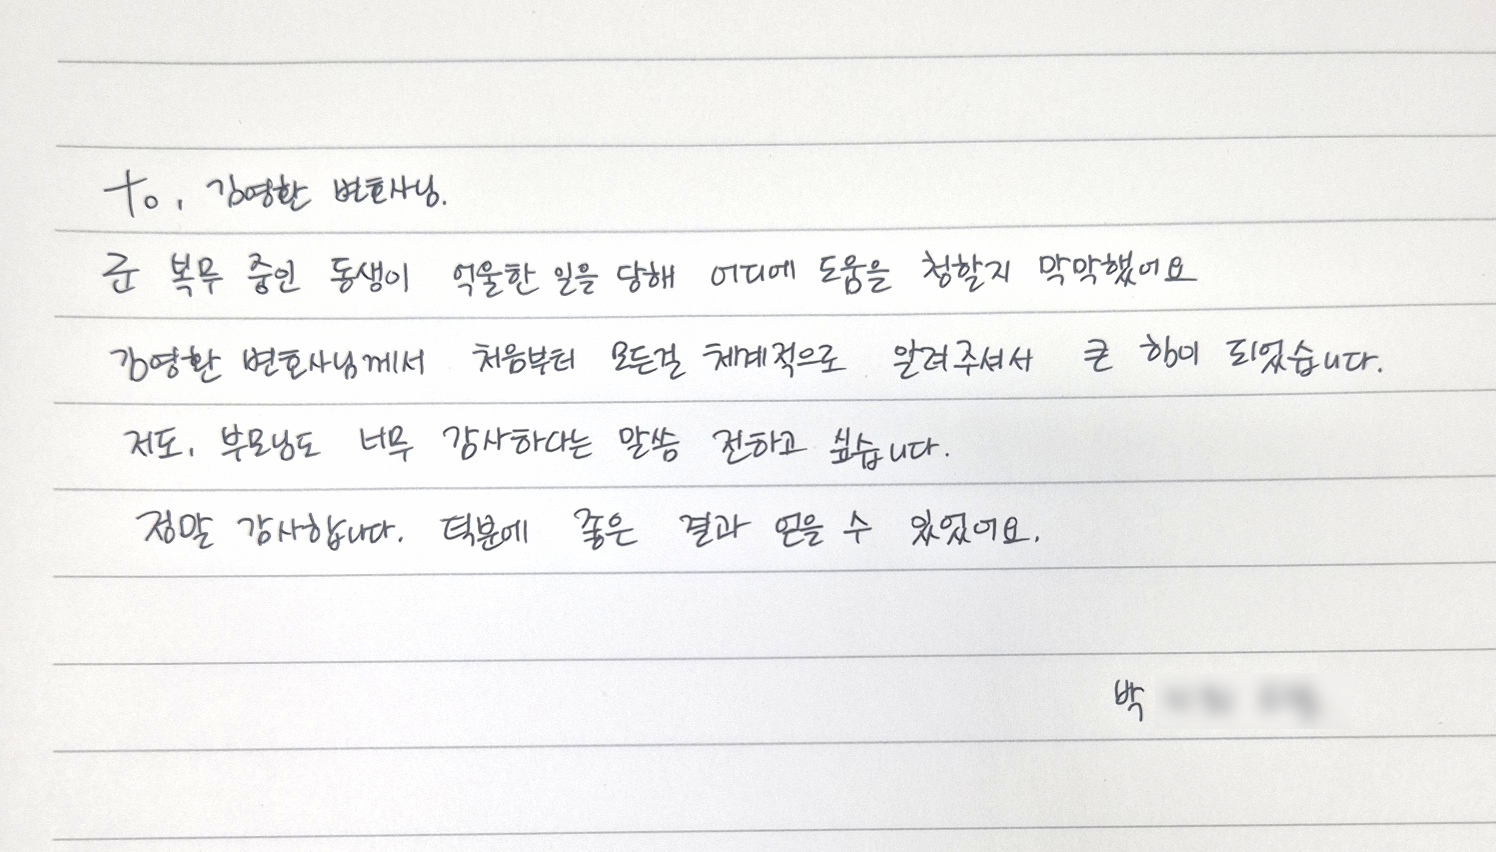 To. 김영환 변호사님.
군 복무 중인 동생이 억울한 일을 당해 어디에 도움을 청할지 막막했어요
김영환 변호사님께서 처음부터 모든걸 체계적으로 알려주셔서 큰 힘이 되었습니다.
저도, 부모님도 너무 감사하다는 말씀 전하고 싶습니다.
정말 감사합니다. 덕분에 좋은 결과 얻을 수 있었어요.
박